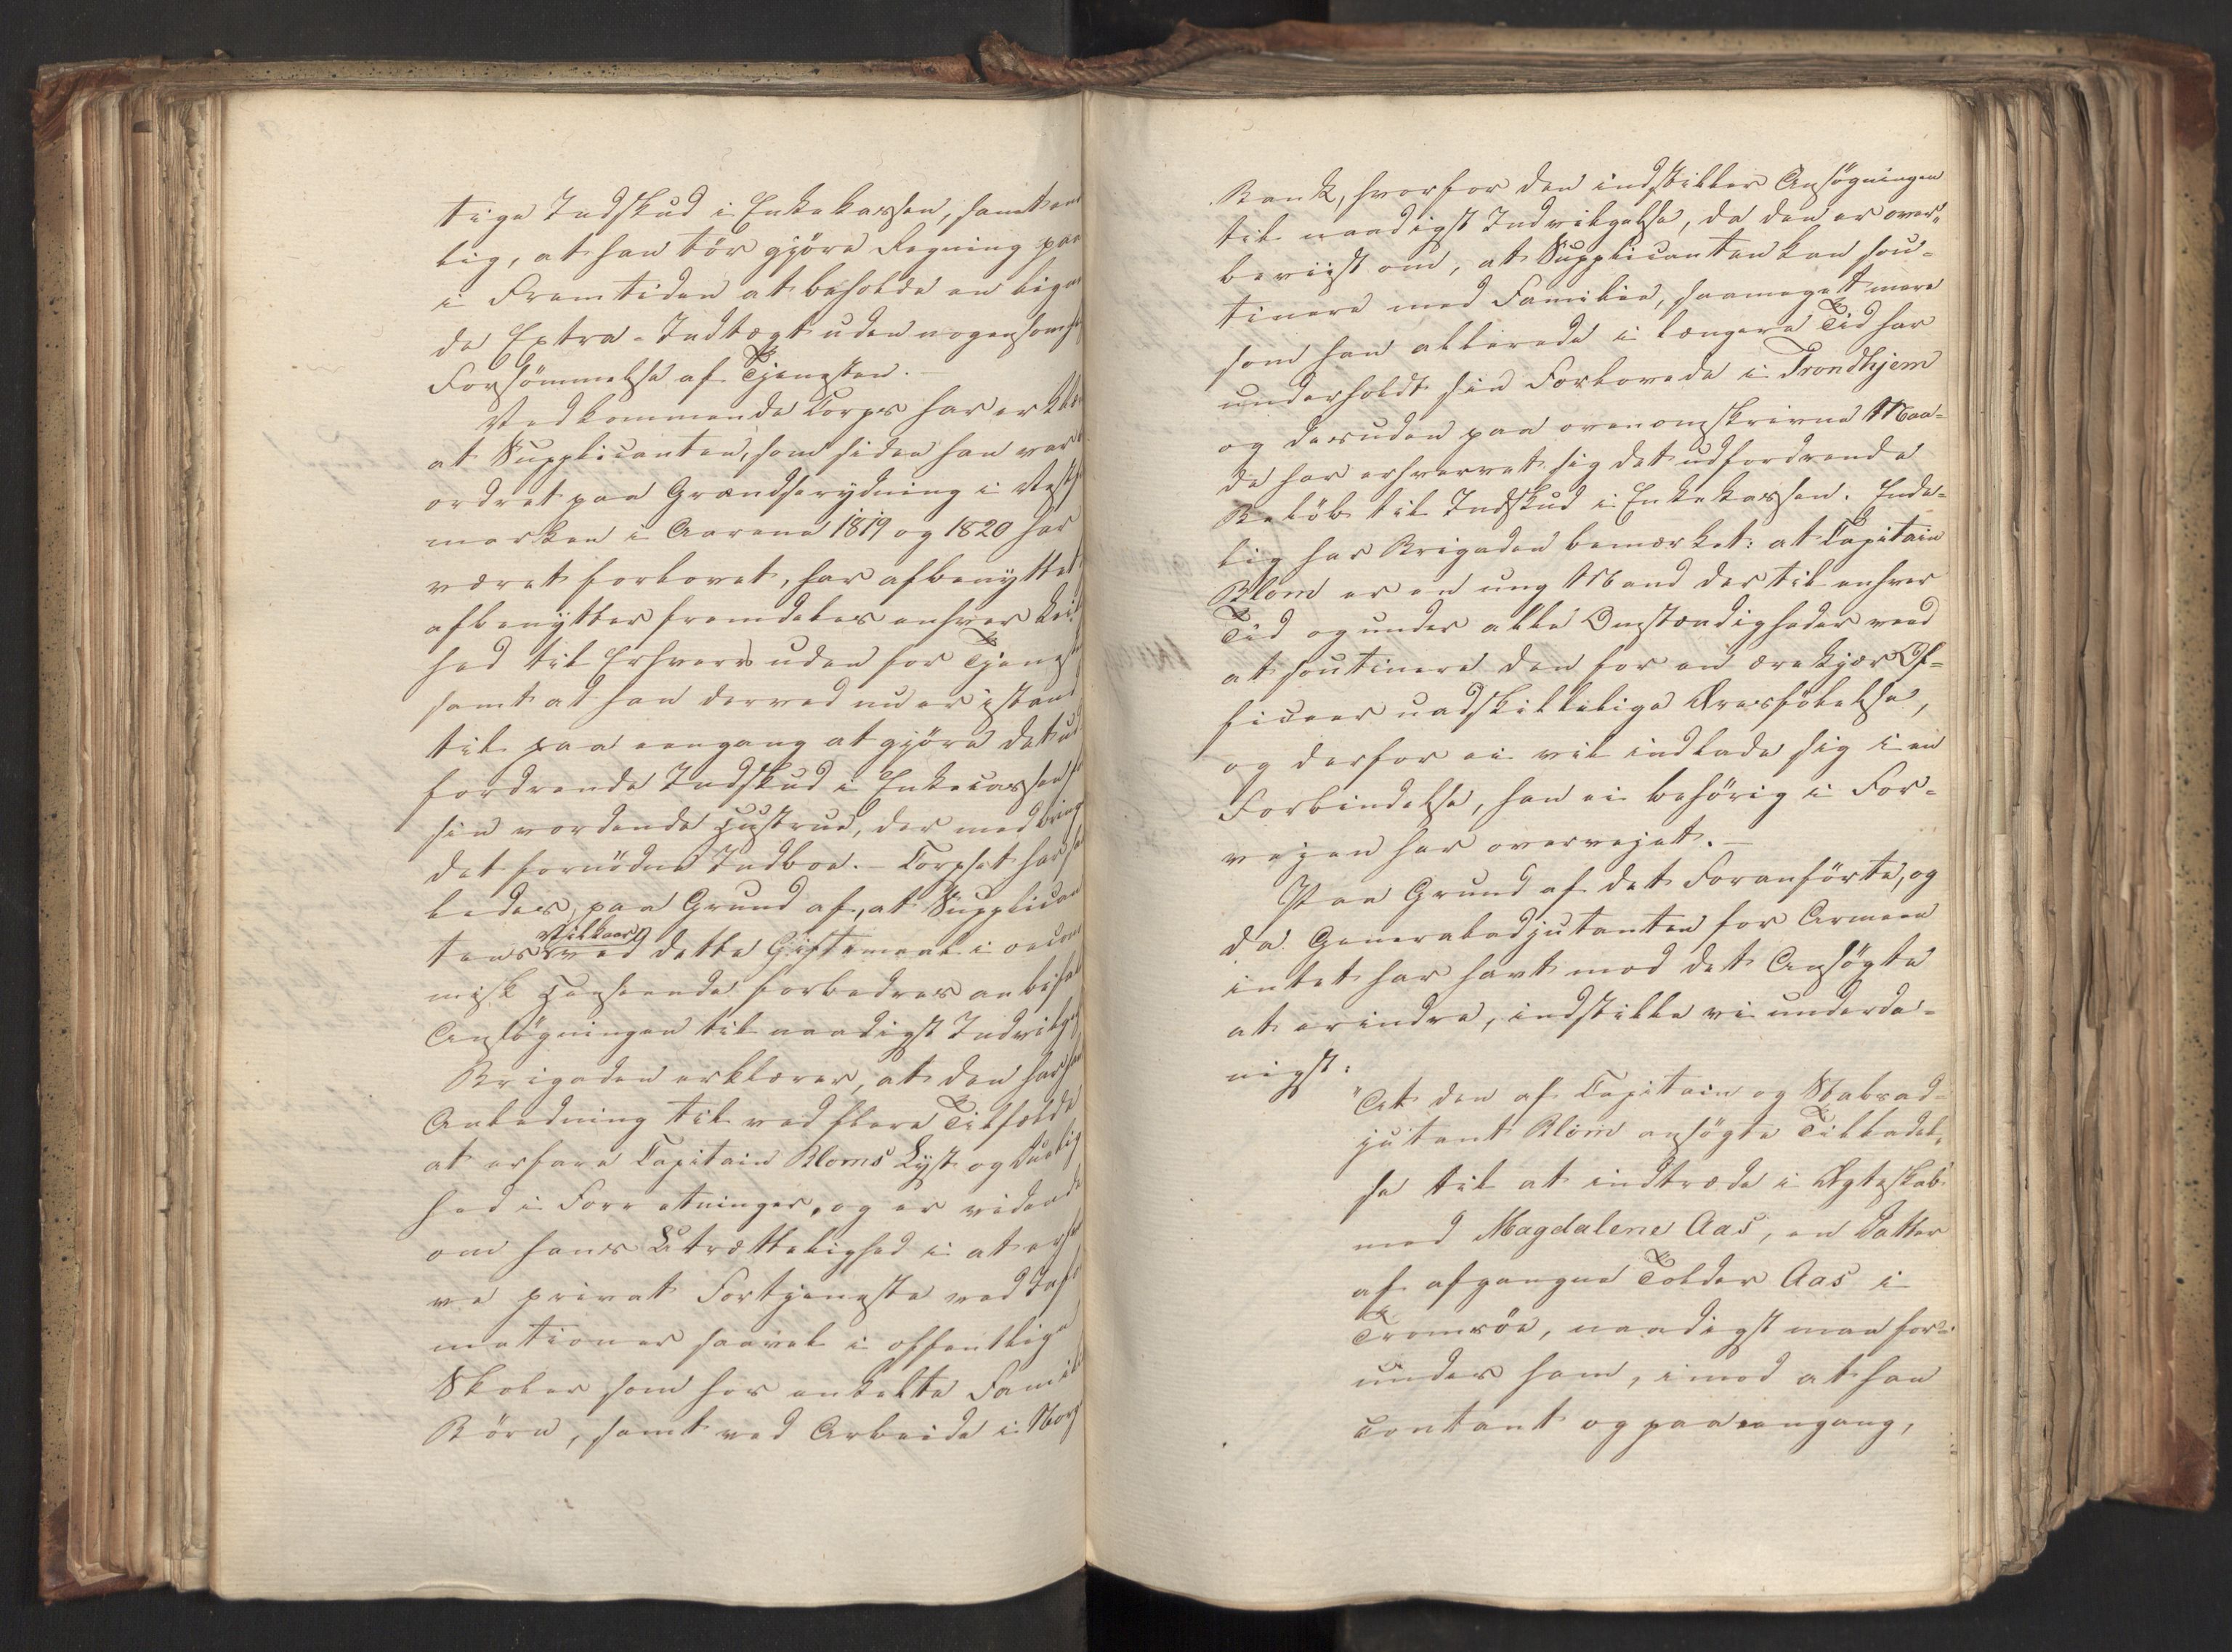 tige Indskud i Enkekassen, samt en
lig, at han tör gjöre Regning paa
i Fremtiden at beholde en lig
de Extra-Indtægt uden nogensom
Forsömmelse af Tjenesten. —
Vedkommende Corps har erklæ
at Supplicanten, som siden han var
ordret paa Grændserydning i
marken i Aarene 1819 og 1820 har
været forlovet, har afbenyttet
afbenytter fremdeles enhver Lei
hed til Erhverv uden for Tjenest
samt at han derved nu er istand
til paa eengang at gjöre det ud
fordrende Indskud i Enkecassen
sin vordende Hustrue, der medbring
det fornödne Indboe. — Corpset har
ledes, paa Grund af, at Supplican
tens Vilkaar ved dette Giftermaal i oecono
misk Henseende forbedres anbefalet
Ansögningen til naadigst Indvilgel
Brigaden erklærer, at den har
Anledning til ved flere Tilfælde
at erfare Capitain Bloms Lyst og Duelig
hed i Forretninger, og er vidende
om hans Utrættelighed i at erhver
ve privat Fortjeneste ved Infor
mationer saavel i offentlige
Skoler som hos enkelte Famili
Börn, samt ved Arbeide i Norg
Bank, hvorfor den indstiller Ansögningen
til naadigst Indvilgelse, da den er over-
beviist om, at Supplicanten kan sou-
tinere med Familie, saameget mere
som han allerede i længere Tid har
underholdt sin Forlovede i Trondhjem
og desuden paa ovenomskrevne Maa-
de har erhvervet sig det udfordrende
Belöb til Indskud i Enkekassen. Ende-
lig har Brigaden bemærket: at Capitain
Blom er en ung Mand der til enhver
Tid og under alle Omstændigheder veed
at soutinere den for en ærekjær Of-
ficeer uadskillelige Æresfölelse,
og derfor ei vil indlade sig i en
Forbindelse, han ei behörig i For-
vejen har overvejet. —
Paa Grund af det Foranförte, og
da Generaladjutanten for Armeen
intet har havt mod det Ansögte
at erindre, indstille vi underda-
nigst:
"At den af Capitain og Stabsad-
jutant Blom ansögte Tilladel-
se til at indtræde i Ægteskab
med Magdalene Aas, en Datter
af afgangne Tolder Aas i
Tromsöe, naadigst maa for-
undes ham, imod at han
contant og paa eengang,